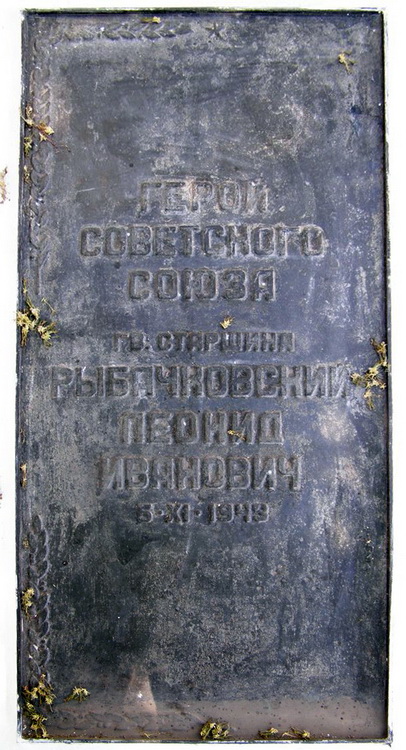 ГЕРОЙ
СОВЕТСКОГО
СОЮЗА
ГВ. СТАРШИНА
РЫБАЧКОВСКИЙ
ЛЕОНИД
ИВАНОВИЧ
5-XI-1943